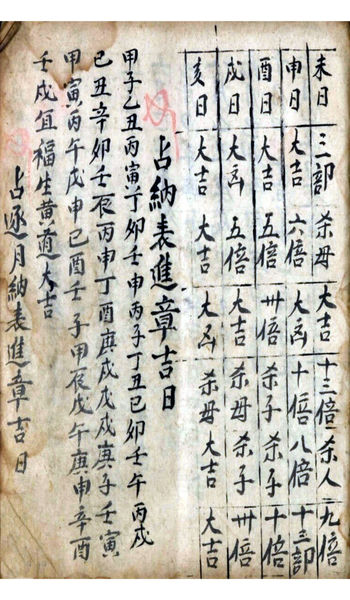 未日 三部 杀母 大吉 十三倍 杀人 九倍
申日 大吉 六倍 大凶 十倍 八倍 十三部
酉日 大吉 五倍 卅倍 杀子 杀子 十倍
戌日 大凶 五倍 大吉 杀母 杀子 卅倍
亥日 大吉 大吉 大凶 杀母 大吉 大吉
占納表進章吉日
甲子乙丑丙寅丁卯壬申丙子丁丑己卯壬午丙戌
己丑辛卯壬辰丙申丁酉庚戌戊戌庚子壬寅
甲寅丙午戊申己酉壬子甲辰戊午庚申辛酉
壬戌宜福生黄道大吉
占逐月納表進章吉日